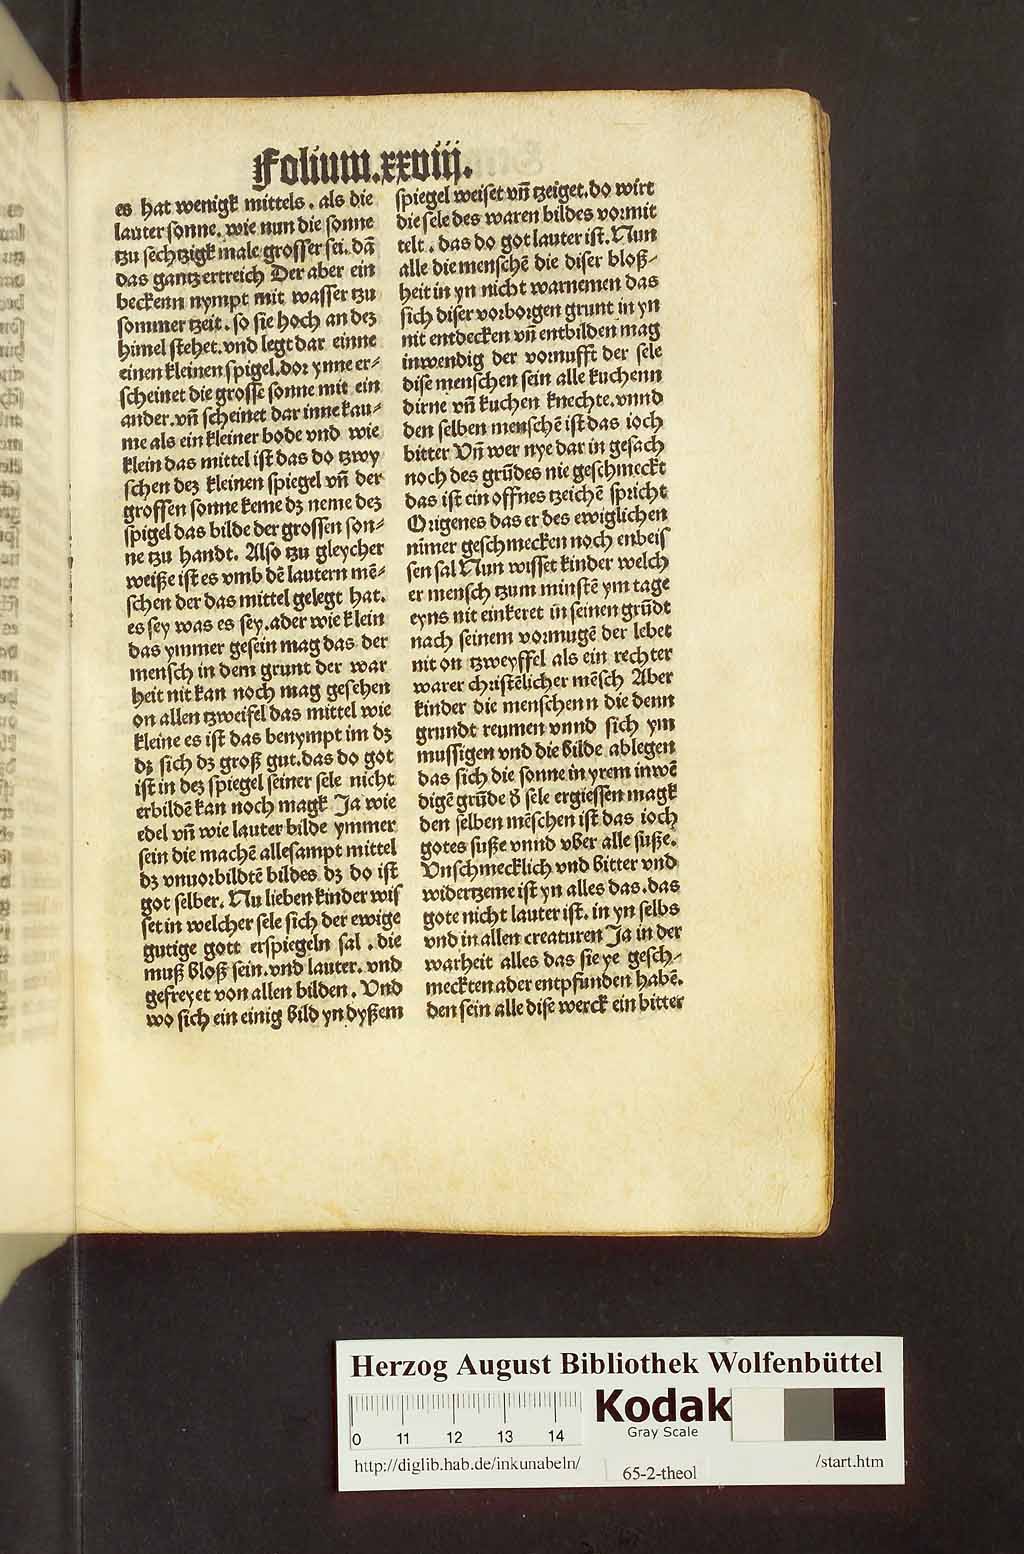 Folium.xxviij.
es hat wenigk mittels. als die
lauter sonne. wie nun die sonne
tzu sechtzigk male grosser sei. dā
das gantz ertreich Der aber ein
beckenn nympt mit wasser tzu
sommer tzeit. so sie hoch an deꝫ
himel stehet. vnd legt dar einne
einen kleinen spigel. dor ynne er⸗
scheinet die grosse sonne mit ein
ander. vn̄ scheinet dar inne kau⸗
me als ein kleiner bode vnd wie
klein das mittel ist das do tzwy
schen deꝫ kleinen spiegel vn̄ der
grossen sonne keme dꝫ neme deꝫ
spigel das bilde der grossen son⸗
ne tzu handt. Also tzu gleycher
weiße ist es vmb dē lautern mē⸗
schen der das mittel gelegt hat.
es sey was es sey. ader wie klein
das ymmer gesein mag das der
mensch in dem grunt der war
heit nit kan noch mag gesehen
on allen tzweifel das mittel wie
kleine es ist das benympt im dꝫ
dꝫ sich dꝫ groß gut. das do got
ist in deꝫ spiegel seiner sele nicht
erbildē kan noch magk Ja wie
edel vn̄ wie lauter bilde ymmer
sein die machē allesampt mittel
dꝫ vnuorbildtē bildes dꝫ do ist
got selber. Nu lieben kinder wis
set in welcher sele sich der ewige
gutige gott erspiegeln sal. die
muß bloß sein. vnd lauter. vnd
gefreyet von allen bilden. Vnd
wo sich ein einig bild yn dyßem
spiegel weiset vn̄ tzeiget. do wirt
die sele des waren bildes vormit
telt. das do got lauter ist. Nun
alle die menschē die diser bloß⸗
heit in yn nicht warnemen das
sich diser vorborgen grunt in yn
nit entdecken vn̄ entbilden mag
inwendig der vornufft der sele
dise menschen sein alle kuchenn
dirne vn̄ kuchen knechte. vnnd
den selben menschē ist das ioch
bitter Vn̄ wer nye dar in gesach
noch des grūdes nie geschmeckt
das ist ein offnes tzeichē spricht
Origenes das er des ewiglichen
nīmer geschmecken noch enbeis
sen sal Nun wisset kinder welch
er mensch tzum minstē ym tage
eyns nit einkeret in seinen grūdt
nach seinem vormugē der lebet
nit on tzweyffel als ein rechter
warer christēlicher mēsch Aber
kinder die menschenn die denn
grundt reumen vnnd sich ym
mussigen vnd die bilde ablegen
das sich die sonne in yrem inwē
digē grūde d̕ sele ergiessen magk
den selben mēschen ist das ioch
gotes suße vnnd vber alle suße.
Vnschmecklich vnd bitter vnd
widertzeme ist yn alles das. das
gote nicht lauter ist. in yn selbs
vnd in allen creaturen Ja in der
warheit alles das sie ye gesch⸗
meckten ader entpfunden habē.
den sein alle dise werck ein bitter
Herzog August Bibliothek Wolfenbüttel
0 11 12 13 14
Kodak
Gray Scale
http://diglib.hab.de/inkunabeln/
65-2-theol
/start.htm